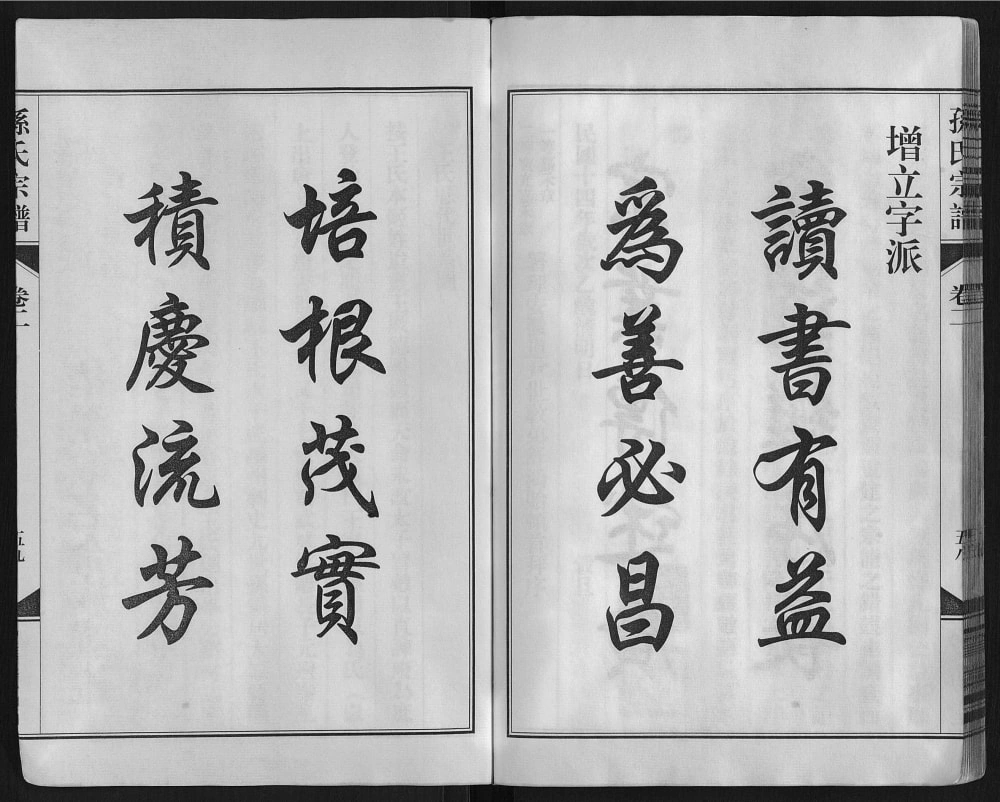 孫氏宗譜
卷二
五八
增立字派
讀書有益
爲善必昌
培根茂實
積慶流芳
孫氏宗譜
卷二
五九